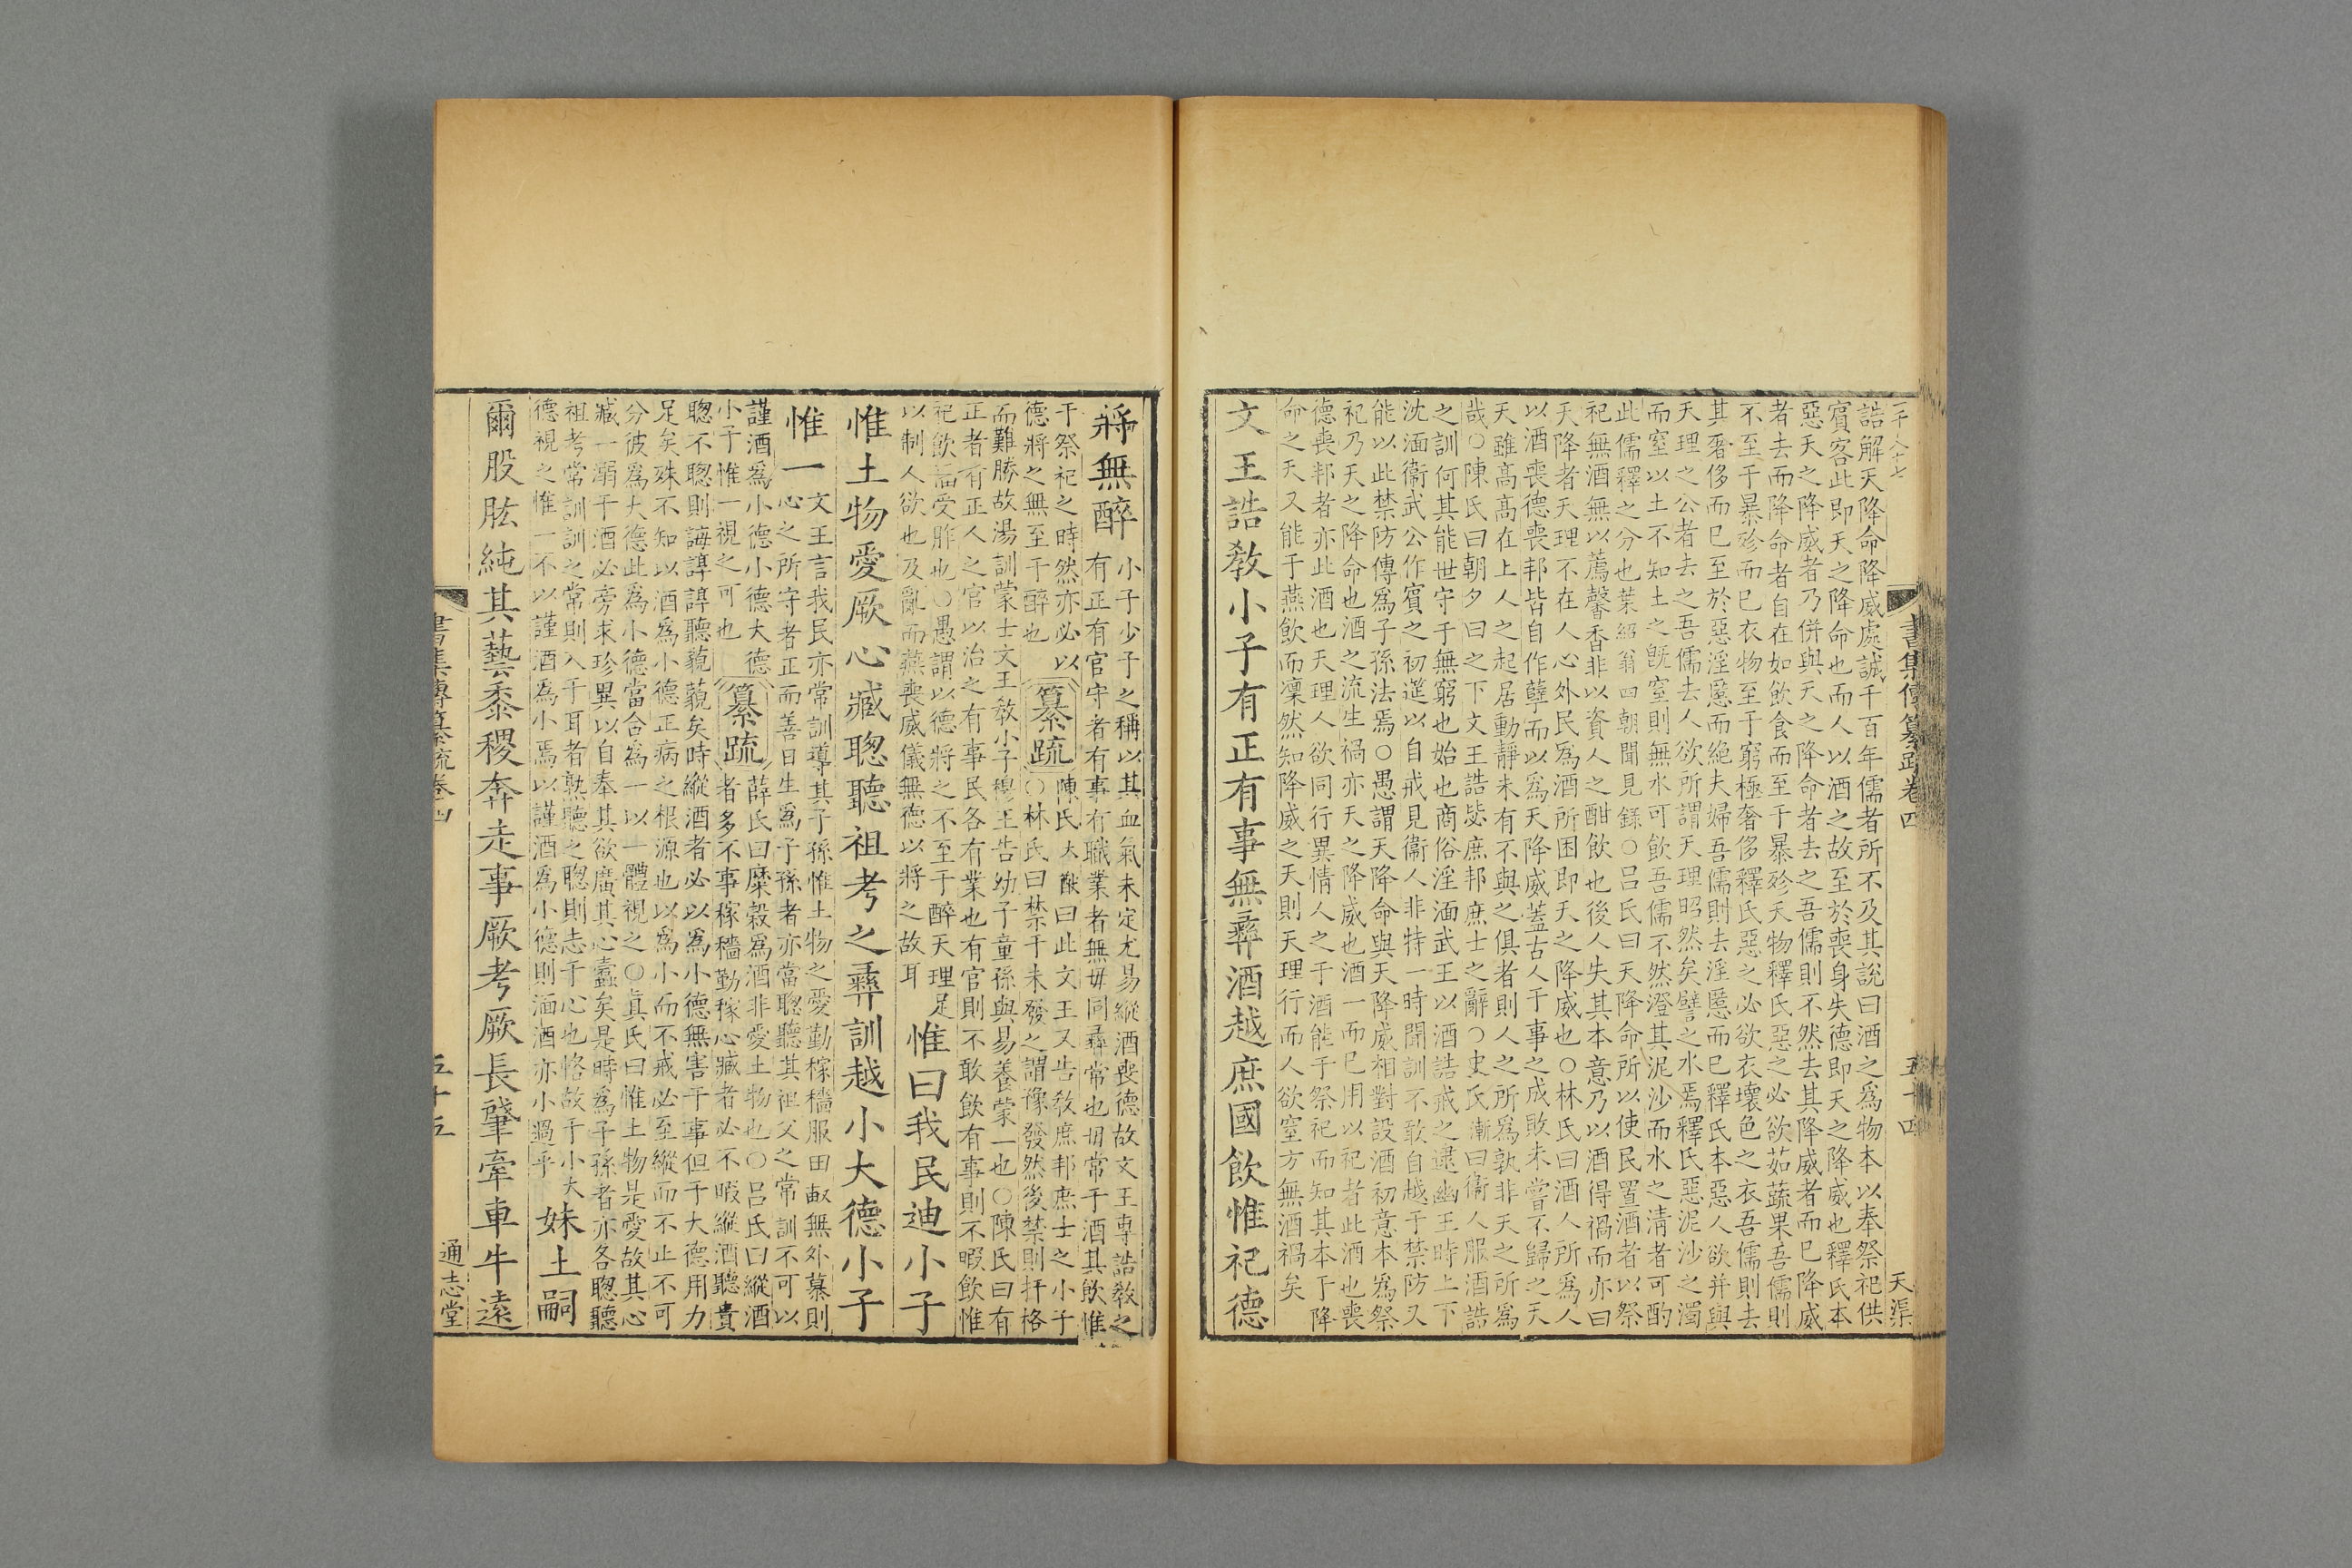 書集傳纂疏卷四
五十四
天渠
誥解天降命降威處誠千百年儒者所不及其說曰酒之爲物本以奉祭祀供
賓客此即天之降命也而人以酒之故至於喪身失德即天之降威也釋氏本
惡天之降威者乃併與天之降命者去之吾儒則不然去其降威者而已降威
者去而降命者自在如飲食而至于暴殄天物釋氏惡之必欲茹蔬果吾儒則
不至于暴殄而已衣物至于窮極奢侈釋氏惡之必欲衣壞色之衣吾儒則去
其奢侈而已至於惡淫慝而絶夫婦吾儒則去淫慝而已釋氏本惡人欲并與
天理之公者去之吾儒去人欲所謂天理昭然矣譬之水焉釋氏惡泥沙之濁
而窒以土不知土之旣窒則無水可飲吾儒不然澄其泥沙而水之清者可酌
此儒釋之分也葉紹翁四朝聞見錄○呂氏曰天降命所以使民置酒者以祭
祀無酒無以薦馨香非以資人之酣飲也後人失其本意乃以酒得禍而亦曰
天降者天理不在人心外民爲酒所困即天之降威也○林氏曰酒人所爲人
以酒喪德喪邦皆自作孽而以爲天降威蓋古人于事之成敗未嘗不歸之天
天雖高高在上人之起居動靜未有不與之俱者則人之所爲孰非天之所爲
哉○陳氏曰朝夕曰之下文王誥毖庶邦庶士之辭○史氏漸曰衞人服酒誥
之訓何其能世守于無窮也始也商俗淫湎武王以酒誥戒之逮幽王時上下
沈湎衞武公作賓之初筵以自戒見衞人非特一時聞訓不敢自越于禁防又
能以此禁防傳爲子孫法焉○愚謂天降命與天降威相對設酒初意本爲祭
祀乃天之降命也酒之流生禍亦天之降威也酒一而已用以祀者此酒也喪
德喪邦者亦此酒也天理人欲同行異情人之于酒能于祭祀而知其本于降
命之天又能于燕飲而凜然知降威之天則天理行而人欲窒方無酒禍矣
文王誥敎小子有正有事無彝酒越庶國飲惟祀德
將無醉小子少子之稱以其血氣未定尤易縱酒喪德故文王專誥敎之
有正有官守者有事有職業者無毋同彝常也毋常于酒其飲惟
于祭祀之時然亦必以
德將之無至于醉也
纂疏
陳氏大猷曰此文王又告敎庶邦庶士之小子
○林氏曰禁于未發之謂豫發然後禁則扞格
而難勝故湯訓蒙士文王敎小子穆王告幼子童孫與易養蒙一也○陳氏曰有
正者有正人之官以治之有事民各有業也有官則不敢飲有事則不暇飲惟
祀飲福受胙也○愚謂以德將之不至于醉天理足
以制人欲也及亂而燕喪威儀無德以將之故耳
惟曰我民迪小子
惟土物愛厥心臧聰聽祖考之彝訓越小大德小子
惟一文王言我民亦常訓導其子孫惟土物之愛勤稼穡服田畝無外慕則
心之所守者正而善日生爲子孫者亦當聰聽其祖父之常訓不可以
謹酒爲小德小德大德
小子惟一視之可也
纂疏
薛氏曰糜穀爲酒非愛土物也○呂氏曰縱酒
者多不事稼穡勤稼心臧者必不暇縱酒聽貴
聰不聰則誨諄諄聽藐藐矣時縱酒者必以爲小德無害于事但于大德用力
足矣殊不知以酒爲小德正病之根源也以爲小而不戒必至縱而不止不可
分彼爲大德此爲小德當合爲一以一體視之○眞氏曰惟土物是愛故其心
臧一溺于酒必旁求珍異以自奉其欲廣其心蠹矣是時爲子孫者亦各聰聽
祖考常訓訓之常則入于耳者熟聽之聰則志于心也恪故于小大
德視之惟一不以謹酒爲小焉以謹酒爲小德則湎酒亦小過乎
妹土嗣
爾股肱純其藝黍稷奔走事厥考厥長肇牽車牛遠
書集傳纂疏卷四
五十五
通志堂